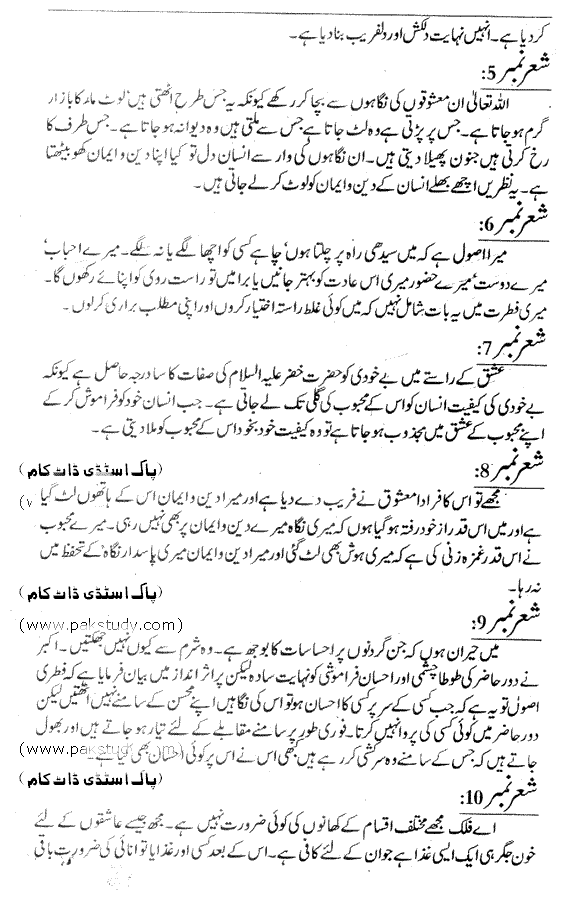 کر دیا ہے۔ انہیں نہایت دلکش اور دلفریب بنا دیا ہے۔
شعر نمبر 5:
اللہ تعالیٰ ان معشوقوں کی نگاہوں سے بچا کر رکھے کیونکہ یہ جس طرح اٹھتی ہیں، لوٹ مار کا بازار
گرم ہو جاتا ہے۔ جس پر پڑتی ہے وہ لٹ جاتا ہے جس سے ملتی ہیں وہ دیوانہ ہو جاتا ہے۔ جس طرف کا
رخ کرتی ہیں جنون پھیلا دیتی ہیں۔ ان نگاہوں کی وار سے انسان دل تو کیا اپنا دین و ایمان کھو بیٹھتا
ہے۔ یہ نظریں اچھے بھلے انسان کے دین و ایمان کو لوٹ کر لے جاتی ہیں۔
شعر نمبر 6:
میرا اصول ہے کہ میں سیدھی راہ پر چلتا ہوں، چاہے کسی کو اچھا لگے یا نہ لگے۔ میرے احباب،
میرے دوست، میرے حضور میری اس عادت کو بہتر جانیں یا برا میں تو راست روی کو اپنائے رکھوں گا۔
میری فطرت میں یہ بات شامل نہیں کہ میں کوئی غلط راستہ اختیار کروں اور اپنی مطلب براری کر لوں۔
شعر نمبر 7:
عشق کے راستے میں بے خودی کو حضرت خضر علیہ السلام کی صفات کا سا درجہ حاصل ہے کیونکہ
بے خودی کی کیفیت انسان کو اس کے محبوب کی گلی تک لے جاتی ہے۔ جب انسان خود کو فراموش کر کے
اپنے محبوب کے عشق میں مجذوب ہو جاتا ہے تو وہ کیفیت خود بخود اس کے محبوب کو ملا دیتی ہے۔
شعر نمبر 8:
(پاک اسٹڈی ڈاٹ کام)
مجھے تو اس کافر ادا معشوق نے فریب دے دیا ہے اور میرا دین و ایمان اس کے ہاتھوں لٹ گیا
ہے اور میں اس قدر از خود رفتہ ہو گیا ہوں کہ میری نگاہ میرے دین و ایمان پر بھی نہیں رہی۔ میرے محبوب
نے اس قدر غمزہ زنی کی ہے کہ میری ہوش بھی لٹ گئی اور میرا دین و ایمان میری پاسدار نگاہ کے تحفظ میں
نہ رہا۔
(پاک اسٹڈی ڈاٹ کام)
شعر نمبر 9:
(www.pakstudy.com)
میں حیران ہوں کہ جن گردنوں پر احساسات کا بوجھ ہے۔ وہ شرم سے کیوں نہیں جھکتیں۔ اکبر
نے دور حاضر کی طوطا چشمی اور احسان فراموشی کو نہایت سادہ لیکن پر اثر انداز میں بیان فرمایا ہے کہ فطری
اصول تو یہ ہے کہ جب کسی کے سر پر کسی کا احسان ہو تو اس کی نگاہیں اپنے محسن کے سامنے نہیں اٹھتیں لیکن
دور حاضر میں کوئی کسی کی پروا نہیں کرتا۔ فوری طور پر سامنے مقابلے کے لئے تیار ہو جاتے ہیں اور بھول
جاتے ہیں کہ جس کے سامنے وہ سرکشی کر رہے ہیں کبھی اس نے اس پر کوئی احسان بھی کیا ہے۔
(www.pakstudy.com)
(پاک اسٹڈی ڈاٹ کام)
شعر نمبر 10:
اے فلک مجھے مختلف اقسام کے کھانوں کی کوئی ضرورت نہیں ہے۔ مجھ جیسے عاشقوں کے لئے
خون جگر ہی ایک ایسی غذا ہے جو ان کے لئے کافی ہے۔ اس کے بعد کسی اور غذا یا توانائی کی ضرورت باقی